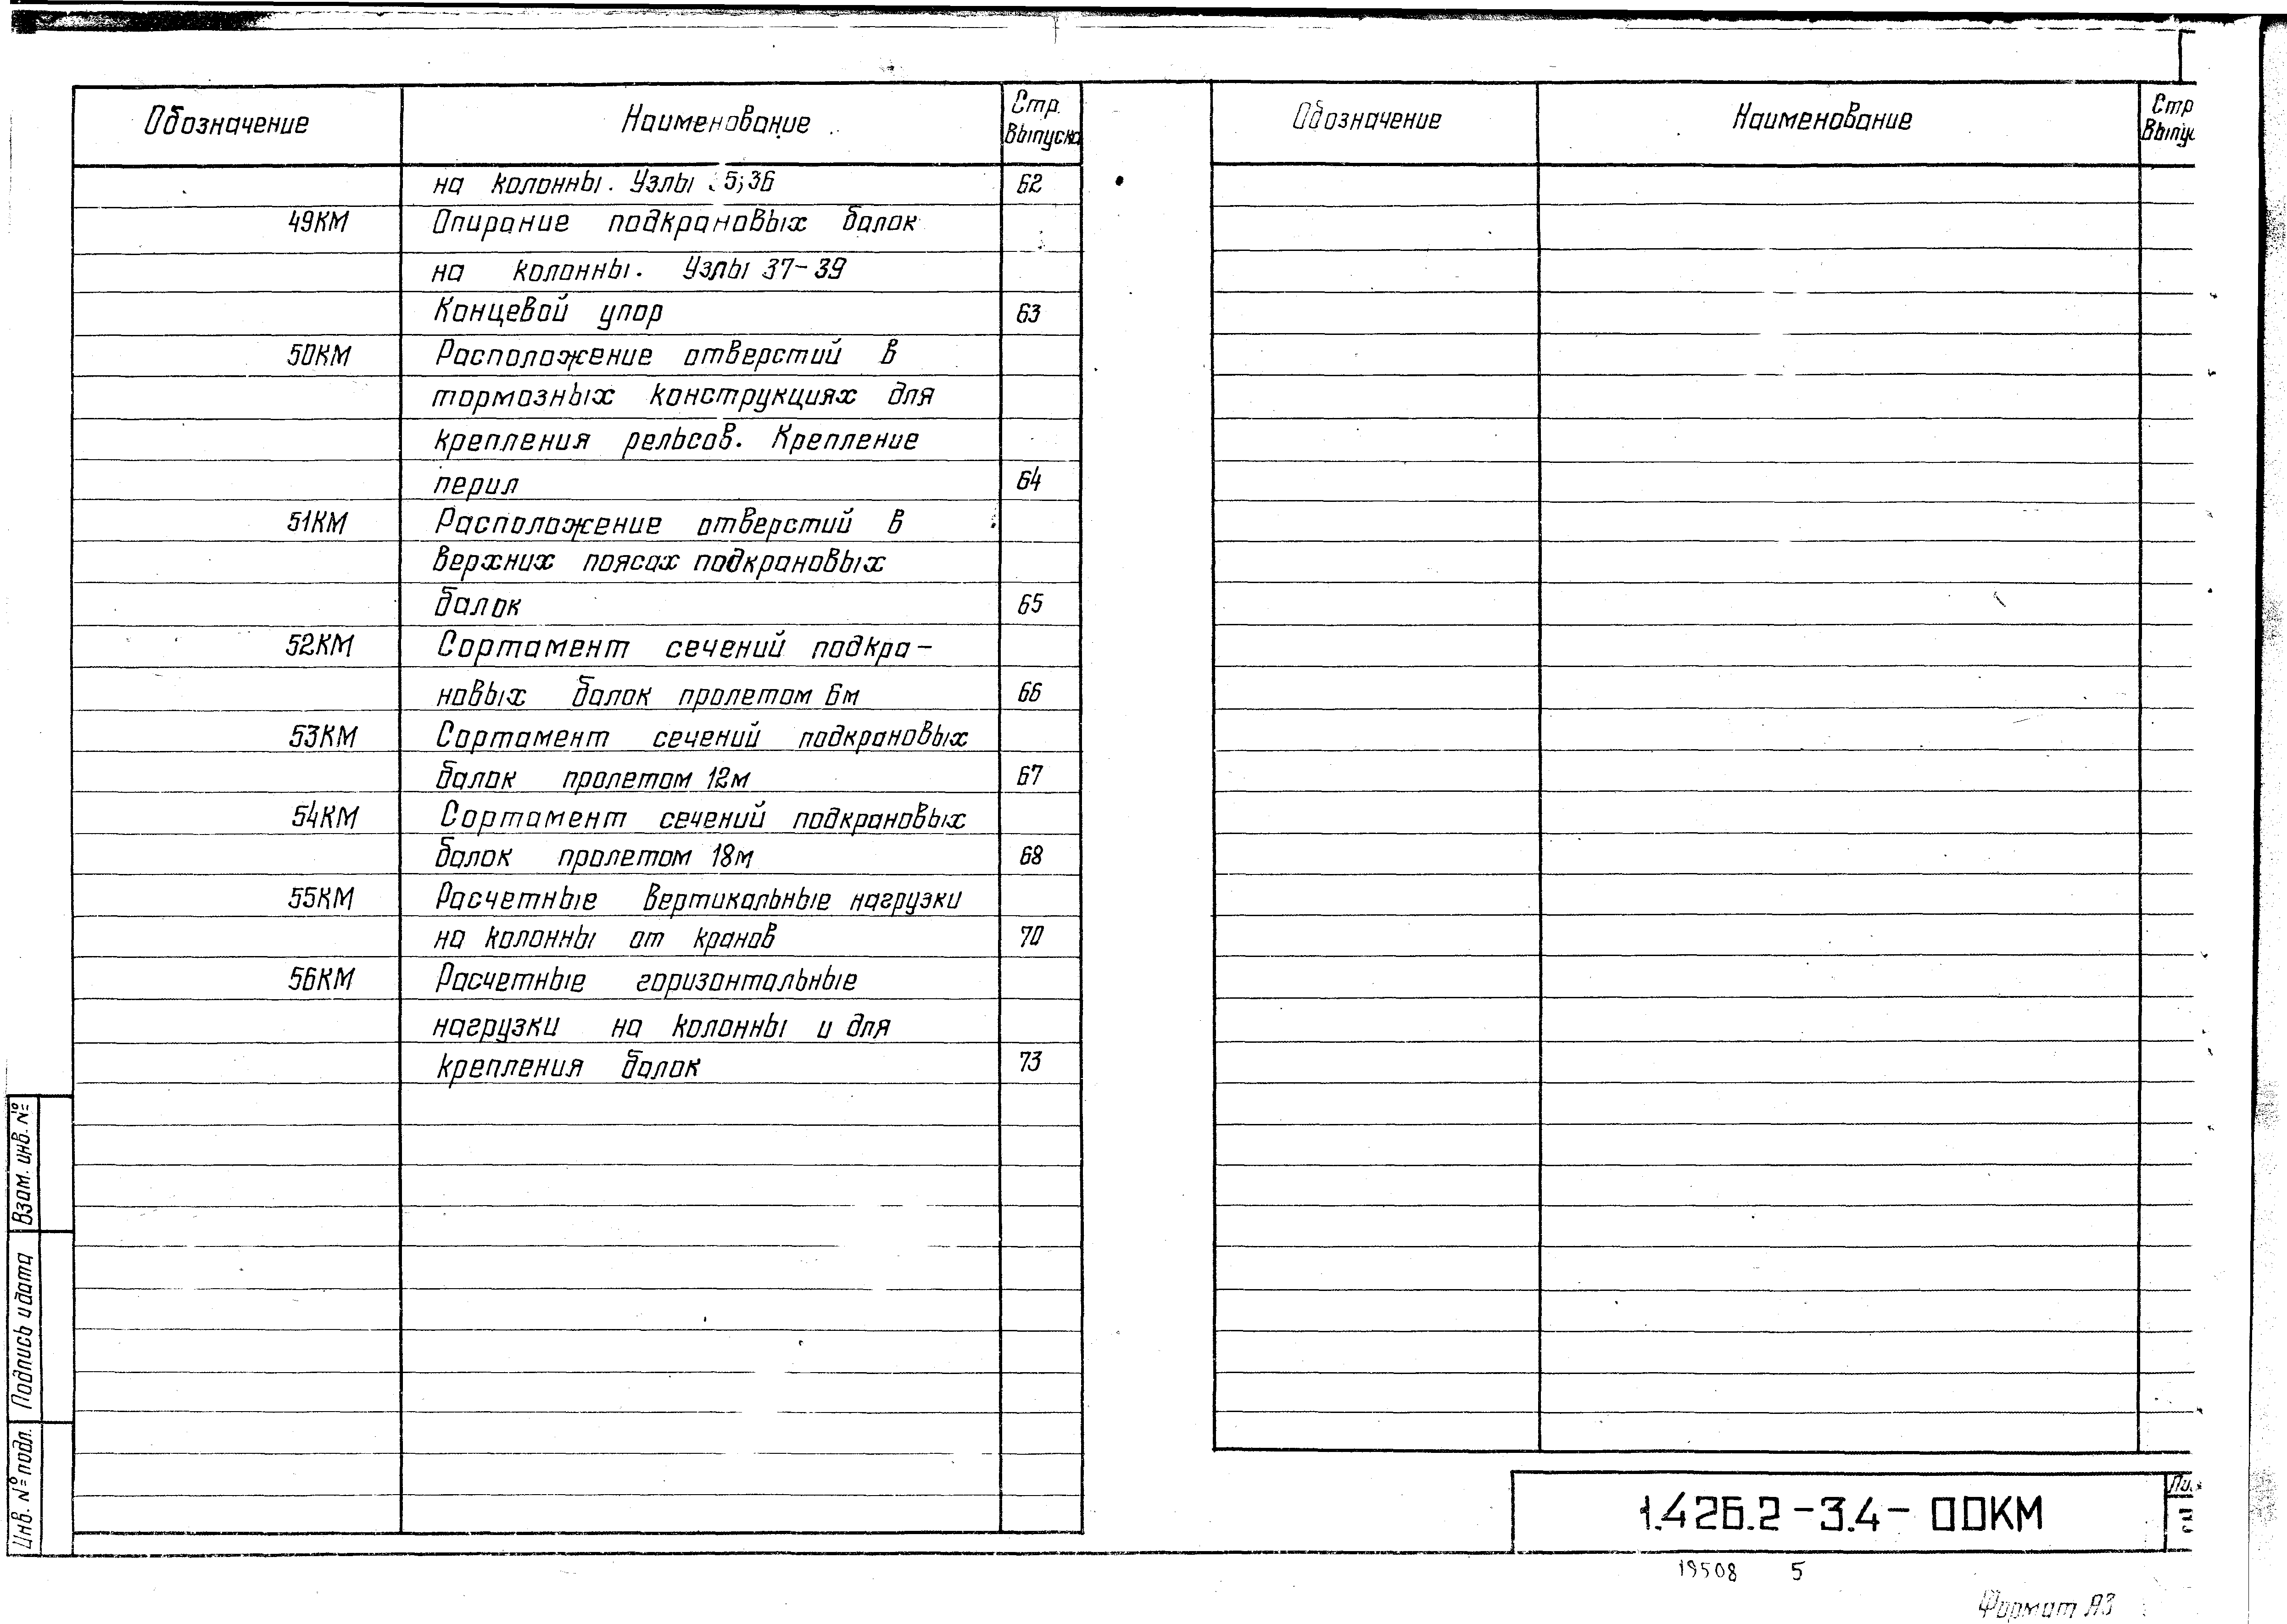 Обозначение Наименование Стр. Выпуска
на колонны. Узлы 5;36 62
49КМ Опирание подкрановых балок
на колонны. Узлы 37-39
Концевой упор 63
50КМ Расположение отверстий в
тормозных конструкциях для
крепления рельсов. Крепление
перил 64
51КМ Расположение отверстий в
верхних поясах подкрановых
балок 65
52КМ Сортамент сечений подкра-
новых балок пролетом 6м 66
53КМ Сортамент сечений подкрановых
балок пролетом 12м 67
54КМ Сортамент сечений подкрановых
балок пролетом 18м 68
55КМ Расчетные вертикальные нагрузки
на колонны от кранов 70
56КМ Расчетные горизонтальные
нагрузки на колонны и для
крепления балок 73
Обозначение Наименование Стр Выпус
Взам. инв. №
Подпись и дата
Инв. № подл.
1.426.2-3.4-00КМ
19508 5
Формат А3